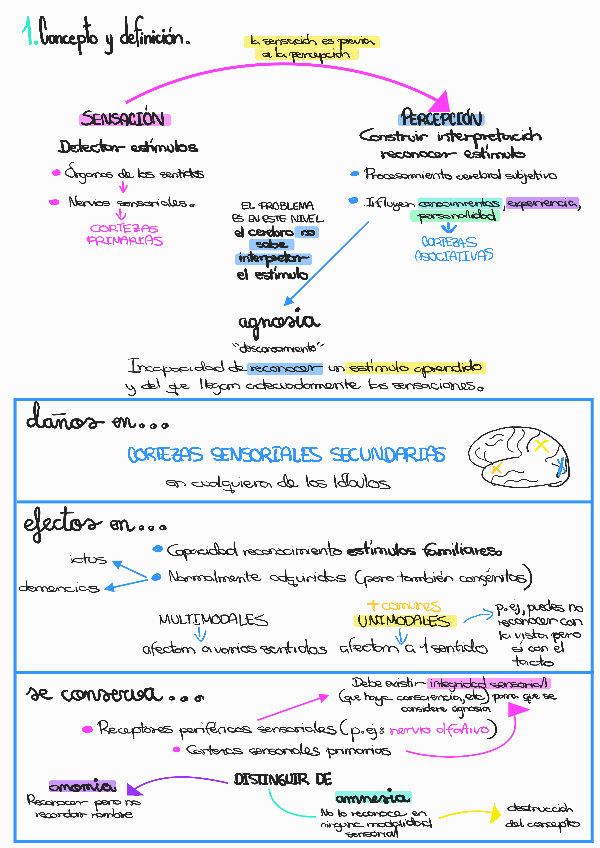 1. Concepto y definición.
la sensación es previa
a la percepción
SENSACIÓN
Detectar estímulos
• Órganos de los sentidos
• Nervios sensoriales.
CORTEZAS
PRIMARIAS
PERCEPCIÓN
Construir interpretación
reconocer estímulo
• Procesamiento cerebral subjetivo
• Influyen conocimientos, experiencia,
personalidad
CORTEZAS
ASOCIATIVAS
EL PROBLEMA
ES EN ESTE NIVEL
el cerebro no
sabe
interpretar
el estímulo
agnosia
"desconocimiento"
Incapacidad de reconocer un estímulo aprendido
y del que llegan adecuadamente las sensaciones.
daños en...
CORTEZAS SENSORIALES SECUNDARIAS
en cualquiera de los lóbulos
efectos en...
• Capacidad reconocimiento estímulos familiares.
• Normalmente adquiridas (pero también congénitas)
ictus
demencias
MULTIMODALES
afectan a varios sentidos
+ comunes
UNIMODALES
afectan a 1 sentido
p. ej, puedes no
reconocer con
la vista pero
sí con el
tacto
se conserva...
Debe existir integridad sensorial
(que haya consciencia, etc) para que se
considere agnosia
• Receptores periféricos sensoriales (p. ej: nervio olfativo)
• Cortezas sensoriales primarias
DISTINGUIR DE
anomia
Reconocer pero no
recordar nombre
amnesia
No lo reconoce en
ninguna modalidad
sensorial
destrucción
del concepto